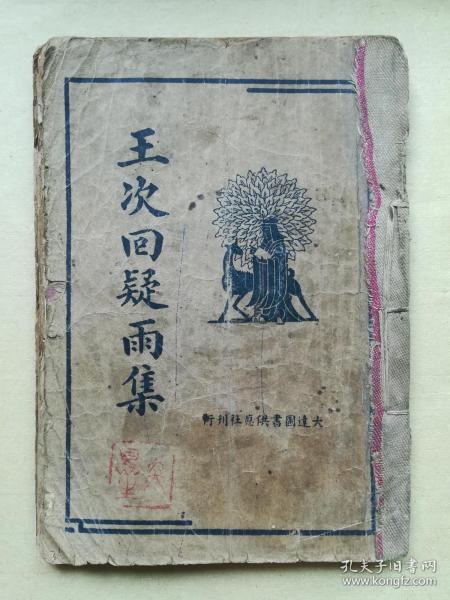 王次回疑雨集
大達圖書供應社刊行
孔夫子旧书网
www.kongfz.com